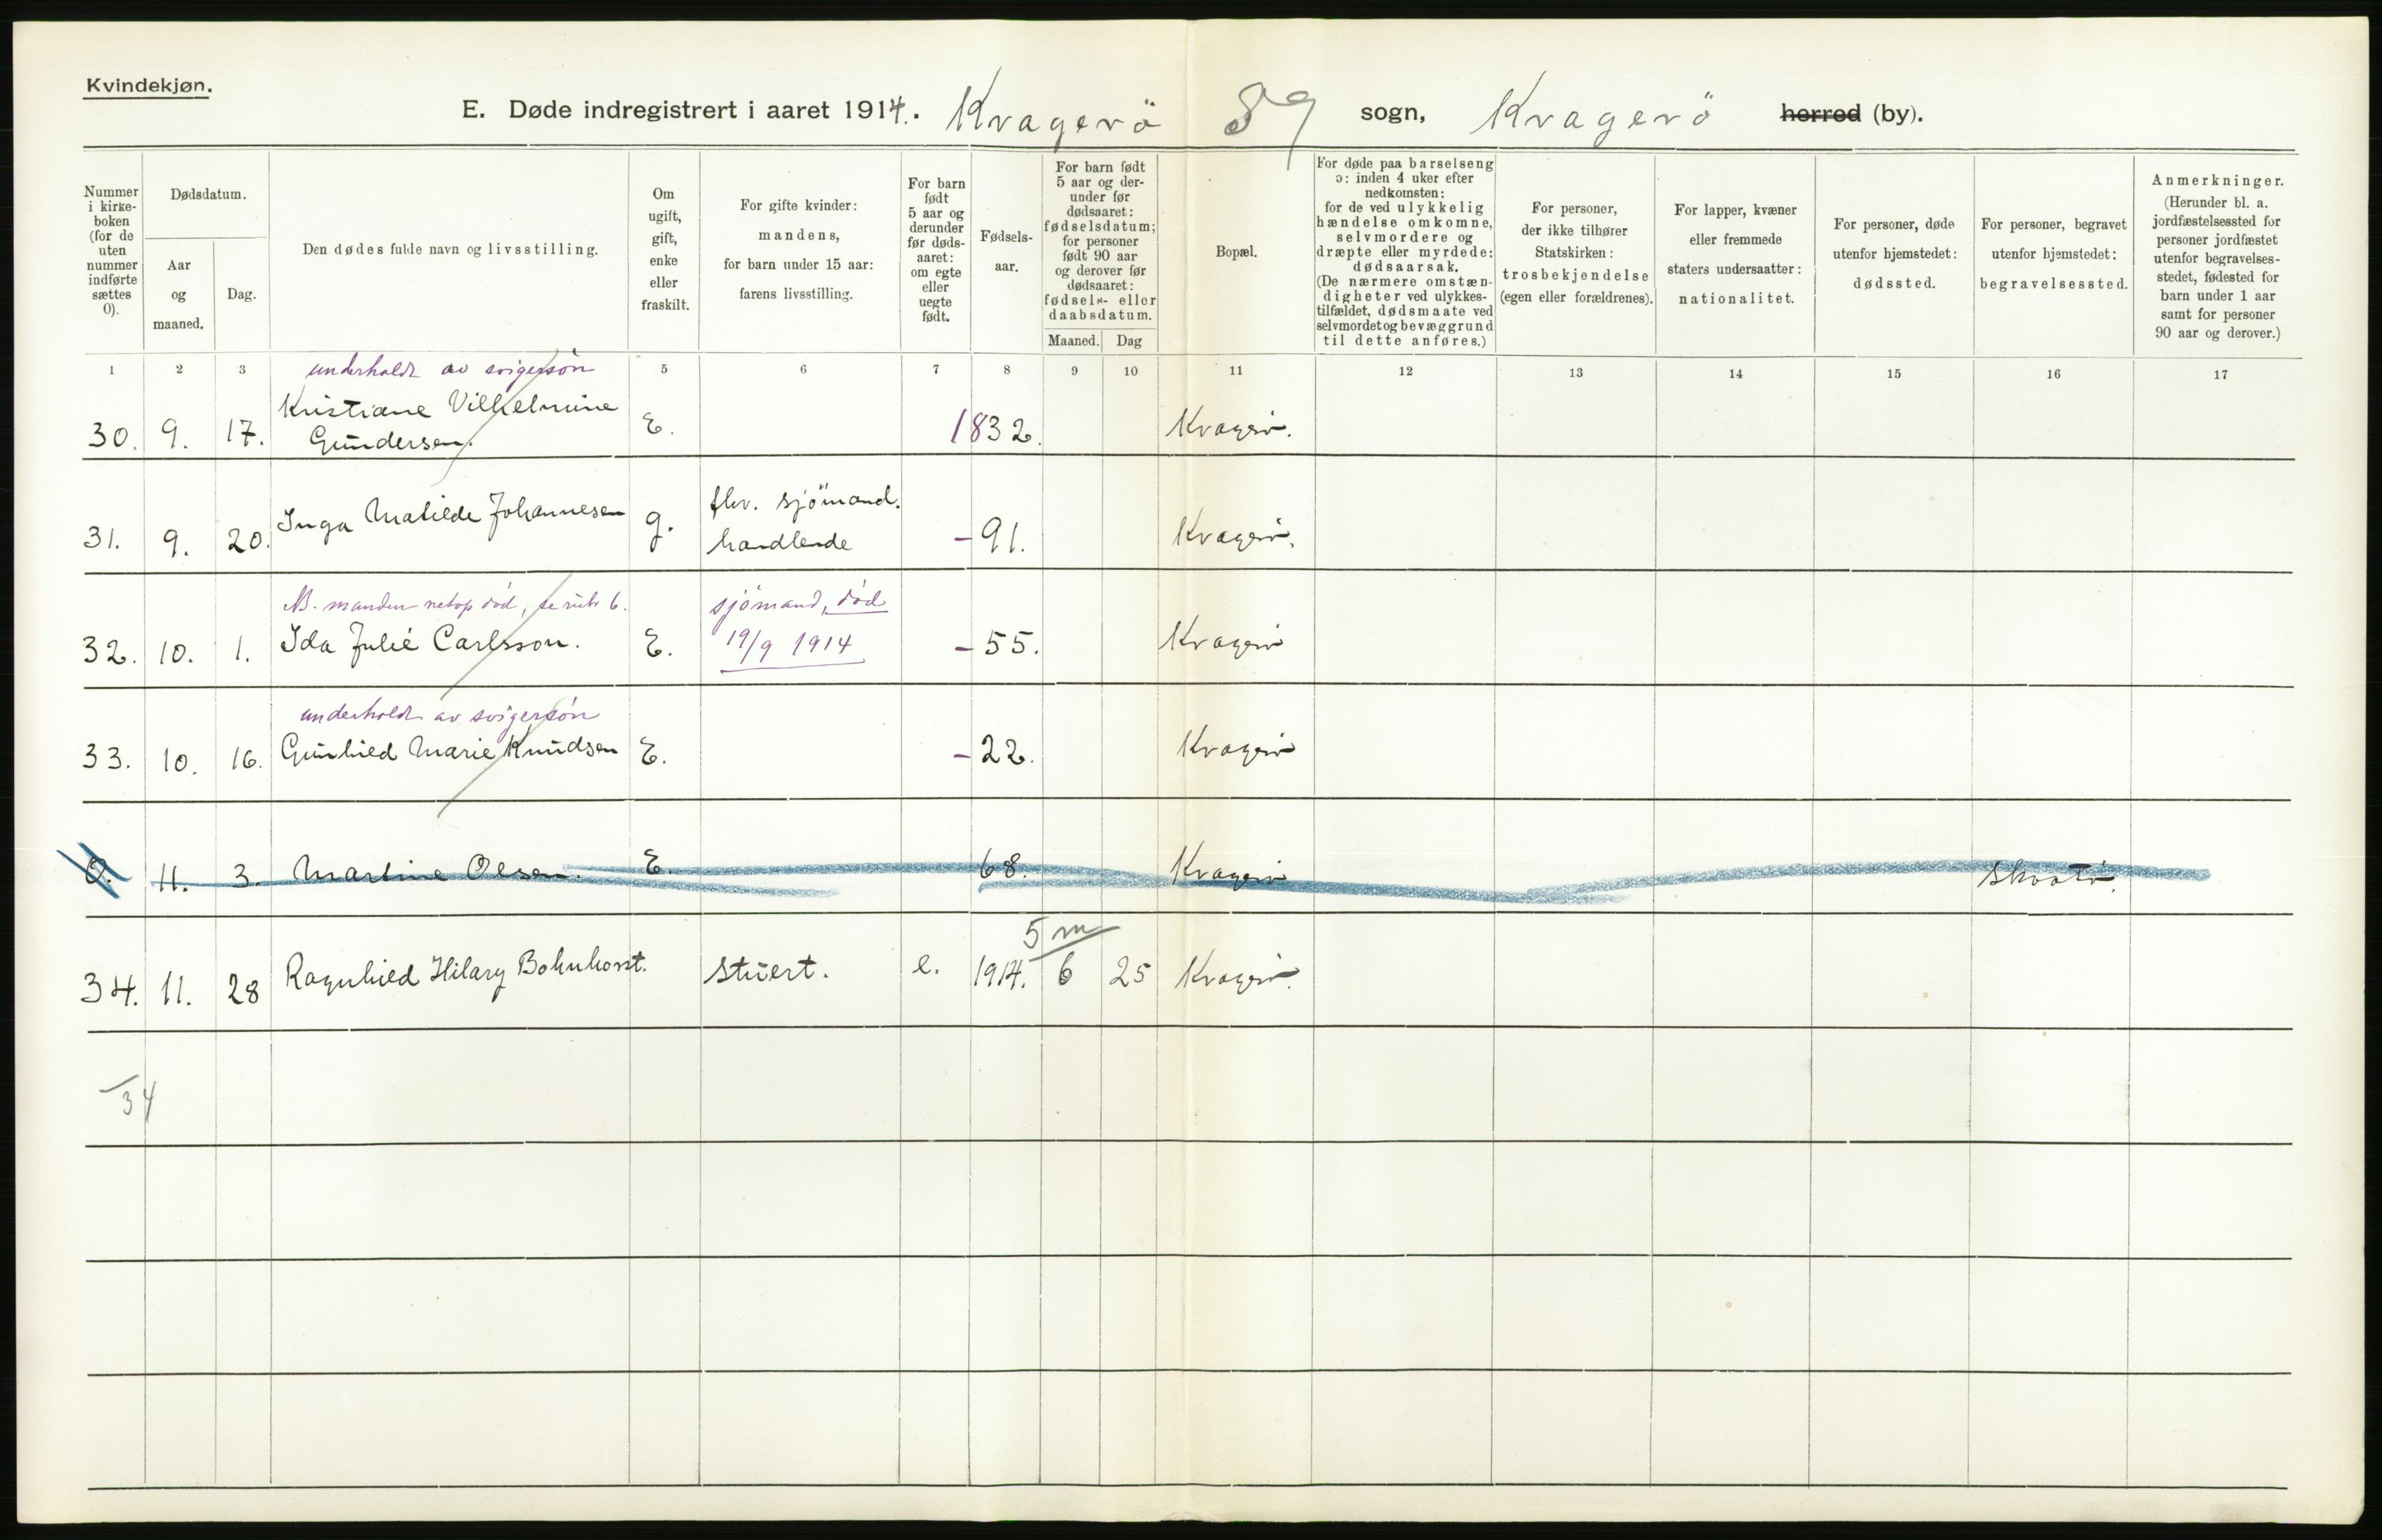 Kvindekjøn.
E. Døde indregistrert i aaret 1914. Kragerö 89 sogn, Kragerö herred (by).
Nummer i kirke-boken (for de uten nummer indførte sættes 0).
Dødsdatum.
Aar og maaned.
Dag.
Den dødes fulde navn og livsstilling.
Om ugift, gift, enke eller fraskilt.
For gifte kvinder: mandens, for barn under 15 aar: farens livsstilling.
For barn født 5 aar og derunder før døds-aaret: om egte eller uegte født.
Fødsels-aar.
For barn født 5 aar og der-under før dødsaaret: fødselsdatum; for personer født 90 aar og derover før dødsaaret: fødsels- eller daabsdatum.
Maaned.
Dag
Bopæl.
For døde paa barselseng ɔ: inden 4 uker efter nedkomsten: for de ved ulykkelig hændelse omkomne, selvmordere og dræpte eller myrdede: dødsaarsak. (De nærmere omstæn-digheter ved ulykkes-tilfældet, dødsmaate ved selvmordet og bevæggrund til dette anføres.)
For personer, der ikke tilhører Statskirken: trosbekjendelse (egen eller forældrenes).
For lapper, kvæner eller fremmede staters undersaatter: nationalitet.
For personer, døde utenfor hjemstedet: dødssted.
For personer, begravet utenfor hjemstedet: begravelsessted.
Anmerkninger. (Herunder bl. a. jordfæstelsessted for personer jordfæstet utenfor begravelses-stedet, fødested for barn under 1 aar samt for personer 90 aar og derover.)
1 2 3 5 6 7 8 9 10 11 12 13 14 15 16 17
underholdt av svigersön
30. 9. 17. Kristiane Vilhelmine Gundersen. E. 1832. Kragerö.
31. 9. 20. Inga Matilde Johannesen g. fhv. sjömand. handlende - 91. Kragerö.
NB. manden netop död, se rubr 6. sjömand, död
32. 10. 1. Ida Julie Carlsson. E. 19/9 1914 - 55. Kragerö
underholdt av svigersön
33. 10. 16. Gunhild Marie Knudsen E. - 22. Kragerö
0. 11. 3. Martine Olsen. E. 68. Kragerö Skaatö.
5 m
34. 11. 28 Ragnhild Hilary Bohnhorst. Stuert. e. 1914. 6 25 Kragerö.
34